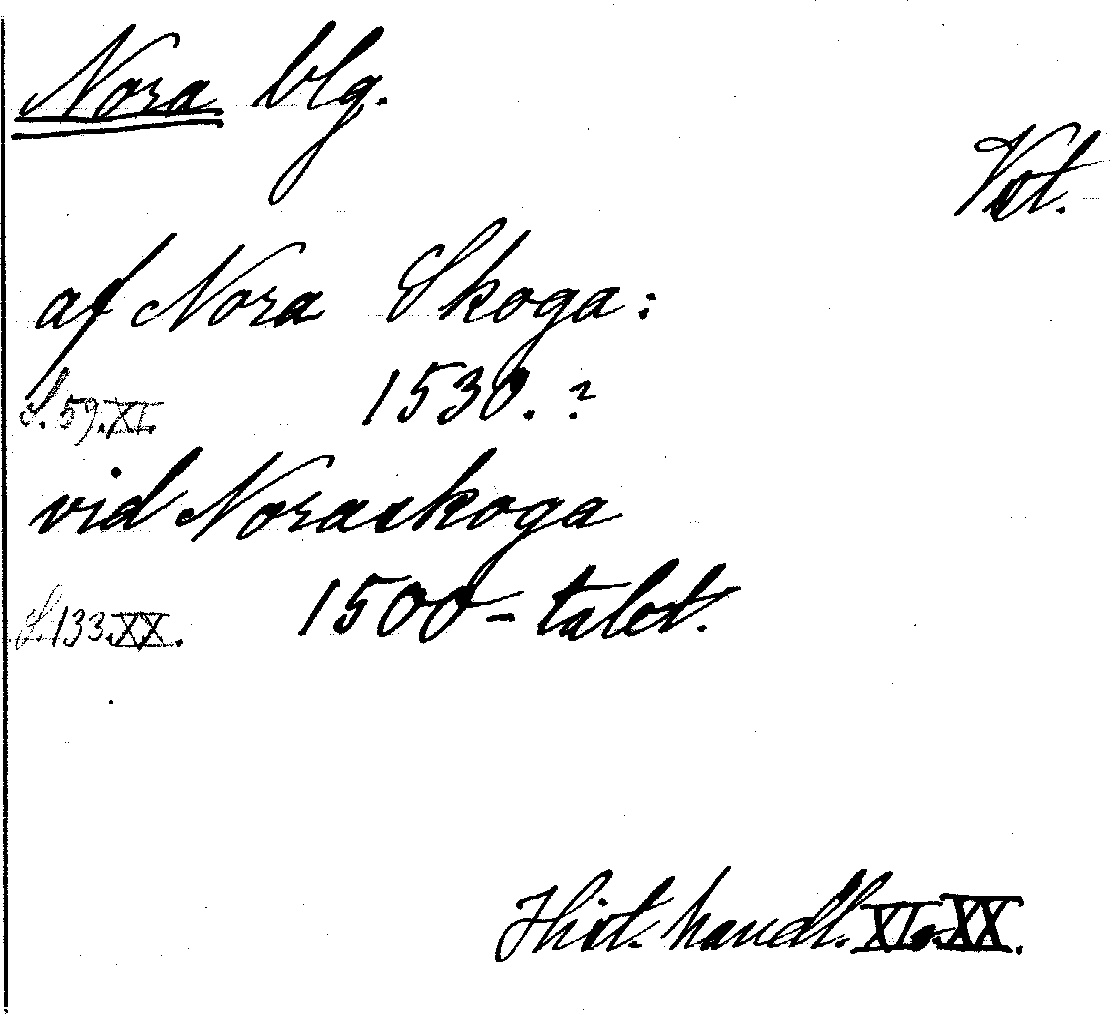 Nora blg.
Vst.
af Nora Skoga:
S. 59. XI. 1530. ?
vid Noraskoga
S. 133. XX. 1500-talet.
Hist. handl. XI o. XX.